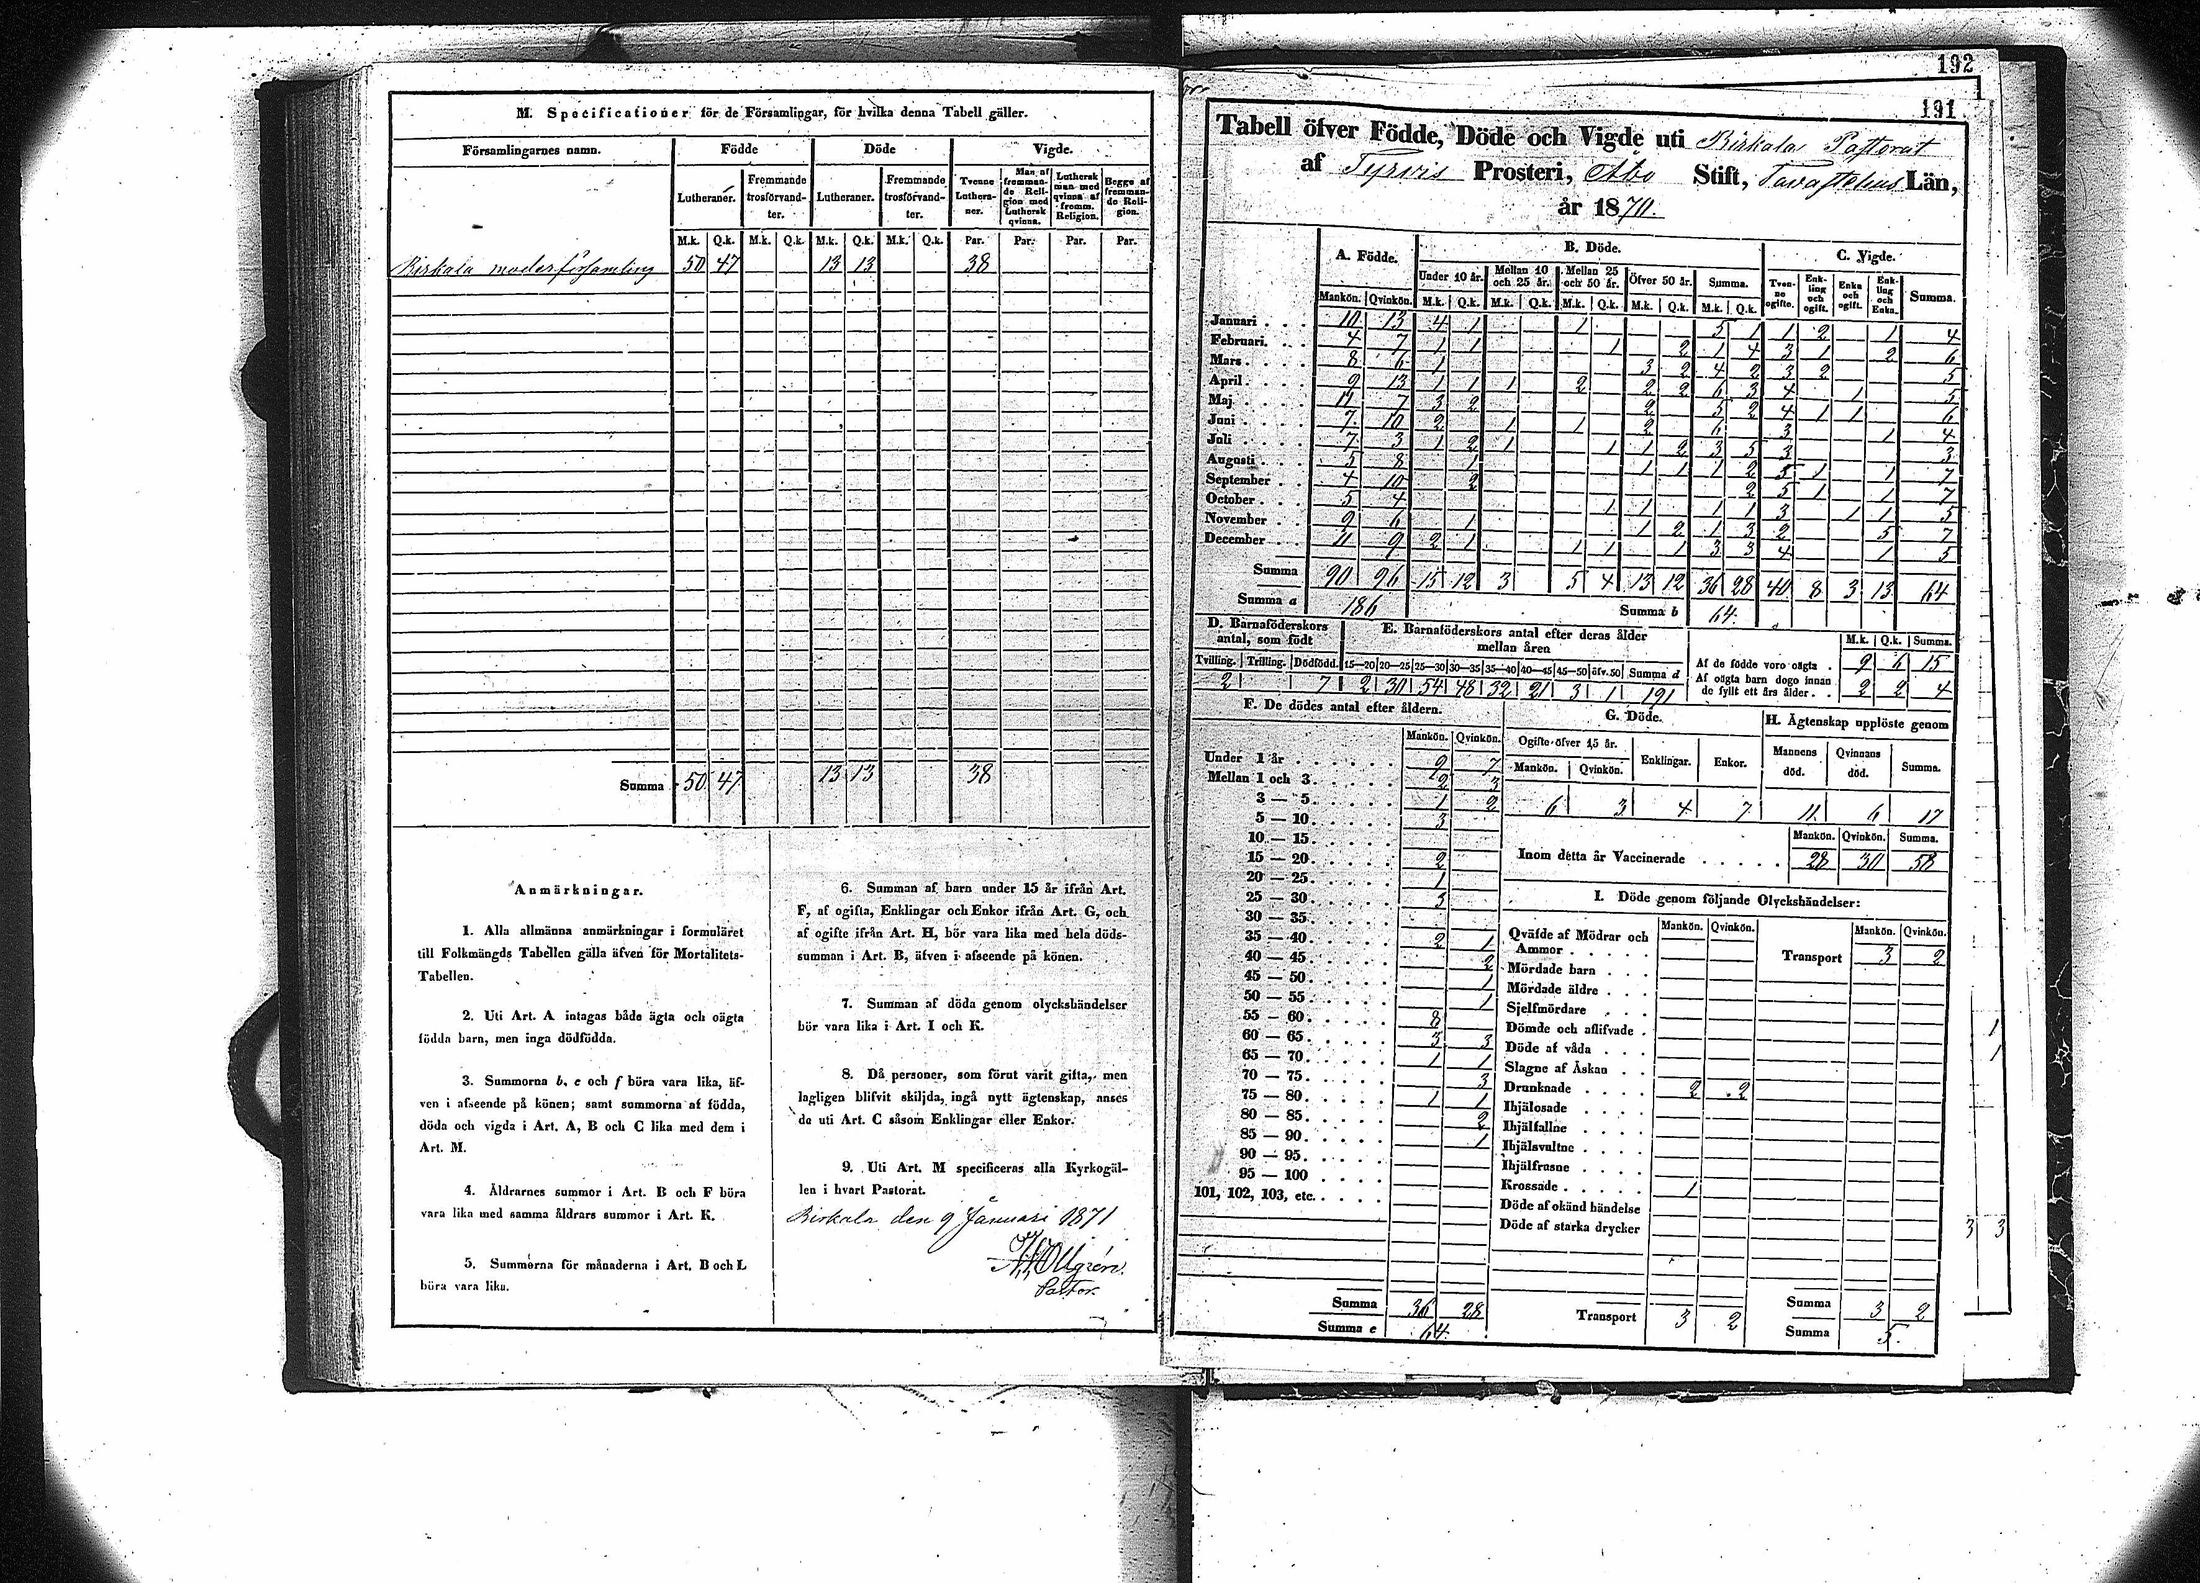 M. Specificationer för de Församlingar, för hvilka denna Tabell gäller.
Församlingarnes namn. Födde Döde Vigde.
Lutheraner. Fremmande trosförvandter. Lutheraner. Fremmande trosförvandter. Tvenne Lutheraner. Man af fremmande Religion med Luthersk qvinna. Luthersk man med qvinna af fremm. Religion. Begge af fremmande Religion.
M.k. Q.k. M.k. Q.k. M.k. Q.k. M.k. Q.k. Par. Par. Par. Par.
Birkala moderförsamling 50 47 13 13 38
Summa 50 47 13 13 38
Anmärkningar.
1. Alla allmänna anmärkningar i formuläret
till Folkmängds Tabellen gälla äfven för Mortalitets-
Tabellen.
2. Uti Art. A intagas både ägta och oägta
födda barn, men inga dödfödda.
3. Summorna b, e och f böra vara lika, äf-
ven i afseende på könen; samt summorna af födda,
döda och vigda i Art. A, B och C lika med dem i
Art. M.
4. Åldrarnes summor i Art. B och F böra
vara lika med samma åldrars summor i Art. K.
5. Summorna för månaderna i Art. B och L
böra vara lika.
6. Summan af barn under 15 år ifrån Art.
F, af ogifta, Enklingar och Enkor ifrån Art. G, och
af ogifte ifrån Art. H, bör vara lika med hela döds-
summan i Art. B, äfven i afseende på könen.
7. Summan af döda genom olyckshändelser
bör vara lika i Art. I och K.
8. Då personer, som förut varit gifta, men
lagligen blifvit skiljda, ingå nytt ägtenskap, anses
de uti Art. C såsom Enklingar eller Enkor.
9. Uti Art. M specificeras alla Kyrkogäl-
len i hvart Pastorat.
Birkala den 9 Januari 1871
Pastor.
192
191
Tabell öfver Födde, Döde och Vigde uti Birkala Pastorat
af Tyrvis Prosteri, Åbo Stift, Tavastehus Län,
år 1870.
A. Födde. B. Döde. C. Vigde.
Under 10 år. Mellan 10 och 25 år. Mellan 25 och 50 år. Öfver 50 år. Summa. Tvenne ogifte. Enkling och ogift. Enka och ogift. Enkling och Enka. Summa.
Mankön. Qvinkön. M.k. Q.k. M.k. Q.k. M.k. Q.k. M.k. Q.k. M.k. Q.k.
Januari 10 13 4 1 1 5 1 1 2 1 4
Februari 4 7 1 1 1 2 1 4 3 1 2 6
Mars 8 6 1 3 2 4 2 3 2 5
April 9 13 1 1 1 2 2 2 6 3 4 1 5
Maj 11 7 3 2 2 5 2 4 1 1 6
Juni 7 10 2 1 1 2 6 3 1 4
Juli 7 3 1 2 1 1 1 2 3 5 3 3
Augusti 5 8 1 1 1 1 2 5 1 1 7
September 4 10 2 2 5 1 1 7
October 5 4 1 1 1 1 3 1 1 5
November 9 6 1 1 2 1 3 2 5 7
December 11 9 2 1 1 1 1 3 3 4 1 5
Summa 90 96 15 12 3 5 4 13 12 36 28 40 8 3 13 64
Summa a 186 Summa b 64.
D. Barnaföderskors antal, som födt E. Barnaföderskors antal efter deras ålder mellan åren M.k. Q.k. Summa.
Tvilling. Trilling. Dödfödd. 15—20 20—25 25—30 30—35 35—40 40—45 45—50 öfv. 50 Summa d
2 7 2 30 54 48 32 21 3 1 191
Af de födde voro oägta 9 6 15
Af oägta barn dogo innan de fyllt ett års ålder 2 2 4
F. De dödes antal efter åldern.
Mankön. Qvinkön.
Under 1 år 9 7
Mellan 1 och 3 2 3
3 — 5 1 2
5 — 10 3
10 — 15
15 — 20 2
20 — 25 1
25 — 30 3
30 — 35
35 — 40 2 1
40 — 45 2
45 — 50 1
50 — 55 1
55 — 60 8
60 — 65 3 3
65 — 70 1 1
70 — 75 3
75 — 80 1 1
80 — 85 2
85 — 90 1
90 — 95
95 — 100
101, 102, 103, etc.
Summa 36 28
Summa e 64.
G. Döde.
Ogifte öfver 15 år. Enklingar. Enkor.
Mankön. Qvinkön.
6 3 4 7
H. Ägtenskap upplöste genom
Mannens död. Qvinnans död. Summa.
11 6 17
Mankön. Qvinkön. Summa.
Inom detta år Vaccinerade 28 30 58
I. Döde genom följande Olyckshändelser:
Mankön. Qvinkön. Mankön. Qvinkön.
Qväfde af Mödrar och Ammor
Transport 3 2
Mördade barn
Mördade äldre
Sjelfmördare
Dömde och aflifvade
Döde af våda
Slagne af Åskan
Drunknade 2 2
Ihjälosade
Ihjälfallne
Ihjälsvultne
Ihjälfrusne
Krossade 1
Döde af okänd händelse
Döde af starka drycker
Transport 3 2
Summa 3 2
Summa 5.
1
1
3 3